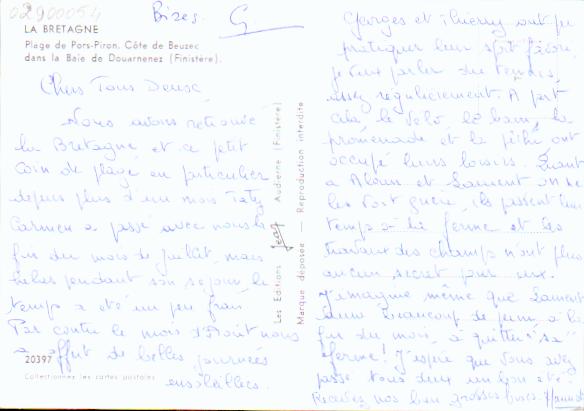 02900054
LA BRETAGNE
Plage de Pors-Piron, Côte de Beuzec
dans la Baie de Douarnenez (Finistère).
Bises. G
Chers Tous Deux
Nous avons retrouvé
la Bretagne et ce petit
coin de plage en particulier
depuis plus d'un mois Taty
Carmen a passé avec nous la
fin du mois de Juillet, mais
hélas pendant son séjour le
temps a été un peu frais
Par contre le mois d'Août nous
a offert de belles journées
ensoleillées.
20397
Collectionnez les cartes postales
Les Editions Audierne (Finistère)
Marque déposée — Reproduction interdite
Georges et Thierry ont pu
pratiquer leur sport favori
je veux parler du tennis,
assez régulièrement. A part
cela le vélo, le bain, la
promenade et la pêche ont
occupé leurs loisirs. Quant
à et Laurent on ne
les voit guère, ils passent leur
temps à la ferme et les
travaux des champs n'ont plus
aucun secret pour eux.
J'imagine même que Laurent
aura beaucoup de peine, à la
fin du mois, à quitter "sa"
ferme! J'espère que vous avez
passé tous deux un bon été.
Recevez nos bien grosses bises.